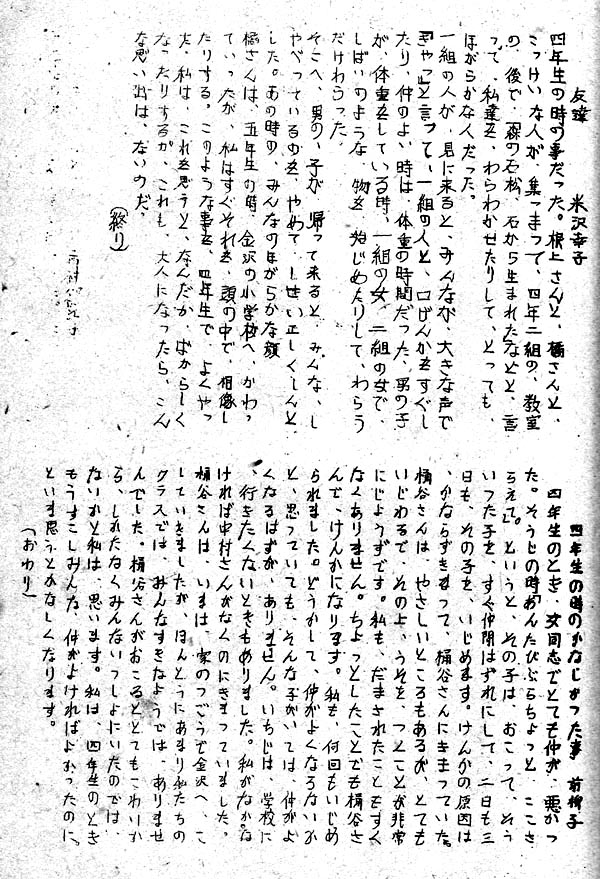 友達　米沢幸子
四年生の時の事だった。根上さんと、橘さんと、
こっけいな人が、集っまって、四年二組の、教室
の、後で、「森の石松、石から生まれた」などと、言
って、私達を、わらわせたりして、とっても、
ほがらかな人だった。
一組の人が、見に来ると、みんなが、大きな声で
「ぎゃっ」と言って、一組の人と、口げんかをすぐし
たり、仲のよい時は、体重の時間だった、男の子
が、体重をしている時、一組の女、二組の女で、
しばいのような、物を、始じめたりして、わらう
だけわらった。
そこへ、男の、子が、帰って来ると、みんな、し
ゃべっているのを、やめて、しせい正しくしんと
した。あの時の、みんなのほがらかな顔
橘さんは、五年生の時、金沢の小学校へ、かわっ
ていったが、私はすぐそれを、頭の中で、相像し
たりする。このような事を、四年生で、よくやっ
た、私は、これを思うと、なんだか、ばからしく
なったりするが、これも、大人になったら、こん
な思い出は、ないのだ。
（終り）
四年生の時のかなしかった事　前
四年生のとき、女同志でとても仲が、悪かっ
た。そうじの時「あんたびぶらちょっと、ここき
らえて。というと、その子は、おこって、そう
いった子を、すぐ仲間はずれにして、二日も三
日も、その子を、いじめます。けんかの原因は
かならずきまって、桶谷さんにきまっていた。
桶谷さんは、やさしいところもあるが、とても
いじわるで、その上、うそを、つくことが非常
にじょうずです。私も、だまされたこともすく
なくありません。ちょっとしたことでも桶谷さ
んで、けんかになります。私も、何回もいじめ
られました。どうかして、仲がよくならないか
と、思っていても、そんな子がいては、仲がよ
くなるはずが、ありません。いちじは、学校に
、行きたくないときもありました。私がなかな
ければ中村さんがなくのにきまっていました。
桶谷さんは、いまは、家のつごうで金沢へ、こ
していきましたが、ほんとうにあまり私たちの
クラスでは、みんなすきなようでは、ありませ
んでした。桶谷さんがおこるととてもこわいか
ら、しかたなくみんないっしょにいたのでは、
ないかと私は、思います。私は、四年生のとき
もうすこしみんな、仲がよければよかったのに、
といま思うとかなしくなります。
（おわり）